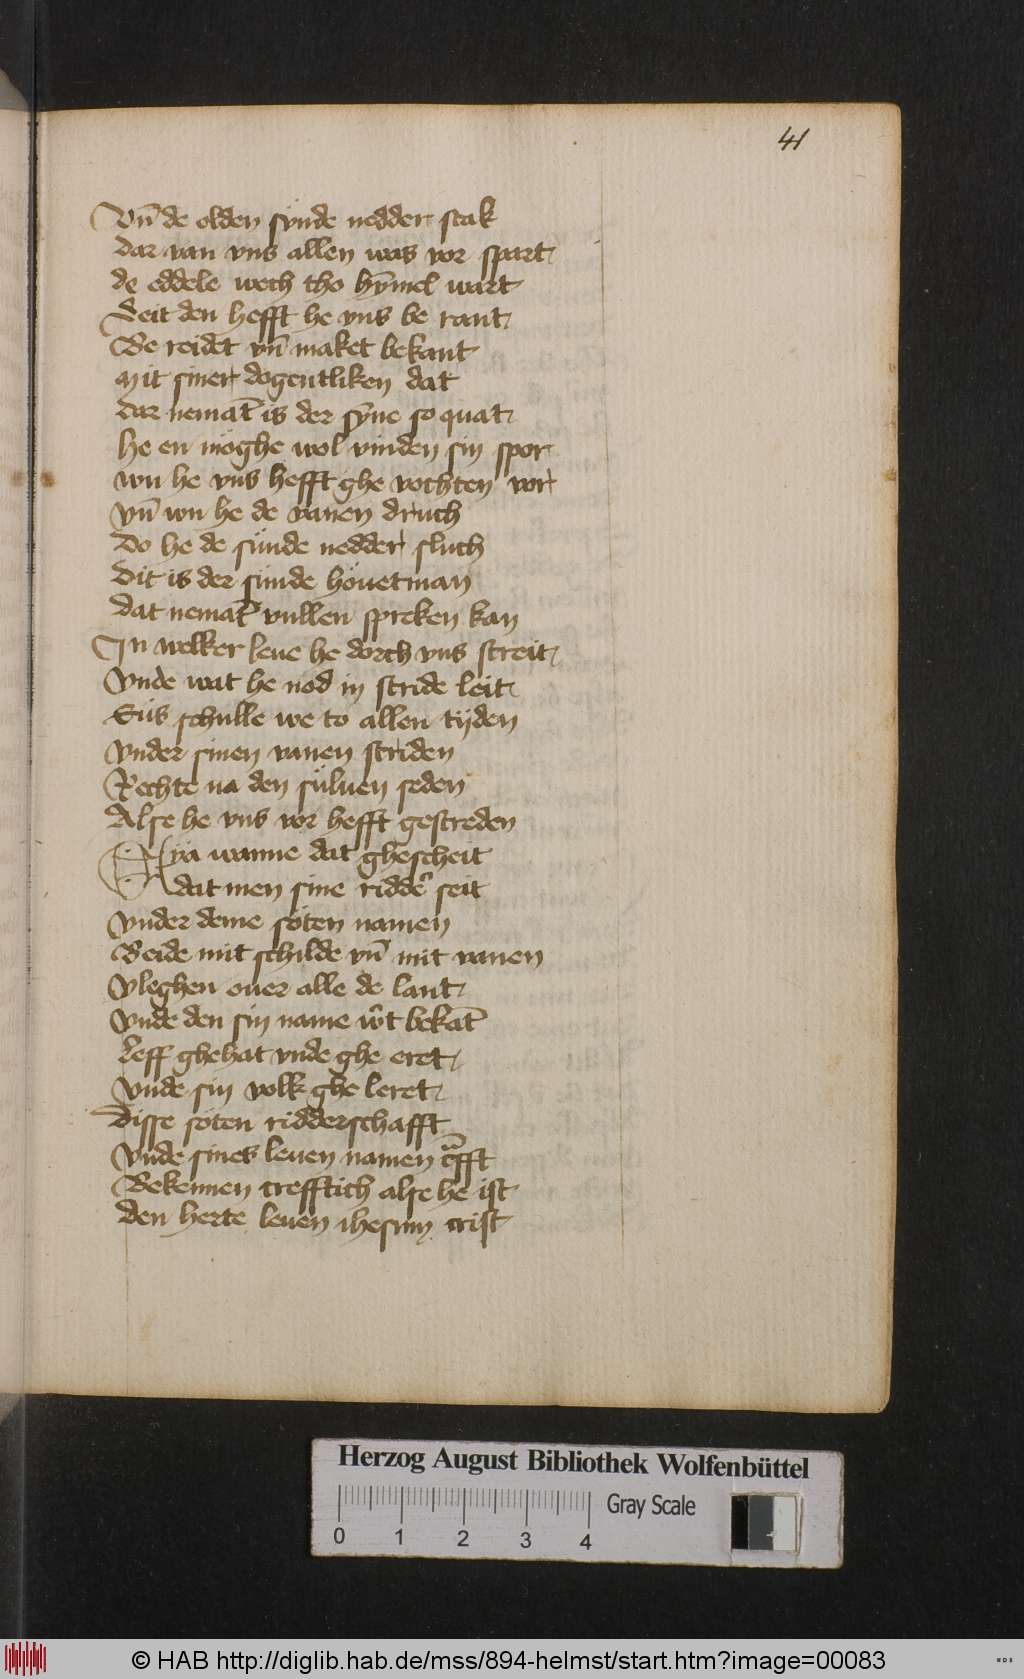 41
Vn̄ de olden sÿnde nedder stak
dar van vns allen was vor spart
de eddele wech tho hȳmel wart
deit den hefft he vns be rant
Be reidet vn̄ maket bekant
Mit siner dogentliken dat
dar nemāt is der sÿne so quat
he en möghe wol vinden sin spor
wu he vns hefft ghe vochten vor
vn̄ wu he de vanen druch
do he de sünde nedder sluch
dit is der sünde höuetman
dat nemāt vullen spreken kan
In welker leue he dorch vns streit
vnde wat he nod in stride leit
Sus schulle we to allen tÿden
vnder sinen vanen striden
Rechte na den süluen seden
Alse he vns vor hefft gestreden
Eya wanne dat ghescheit
dat men sine riddeˀ seit
vnder deme söten namen
Beide mit schilde vn̄ mit vanen
vleghen ouer alle de lant
vnde den sin name wˀt bekāt
leff ghehat vnde ghe eret
vnde sin volk ghe leret
disse söten ridderschafft
vnde sines leuen namen cᷓfft
Bekennen crefftich alse he ist
den herte leuen ihesum crist
Herzog August Bibliothek Wolfenbüttel
0 1 2 3 4 Gray Scale
© HAB http://diglib.hab.de/mss/894-helmst/start.htm?image=00083